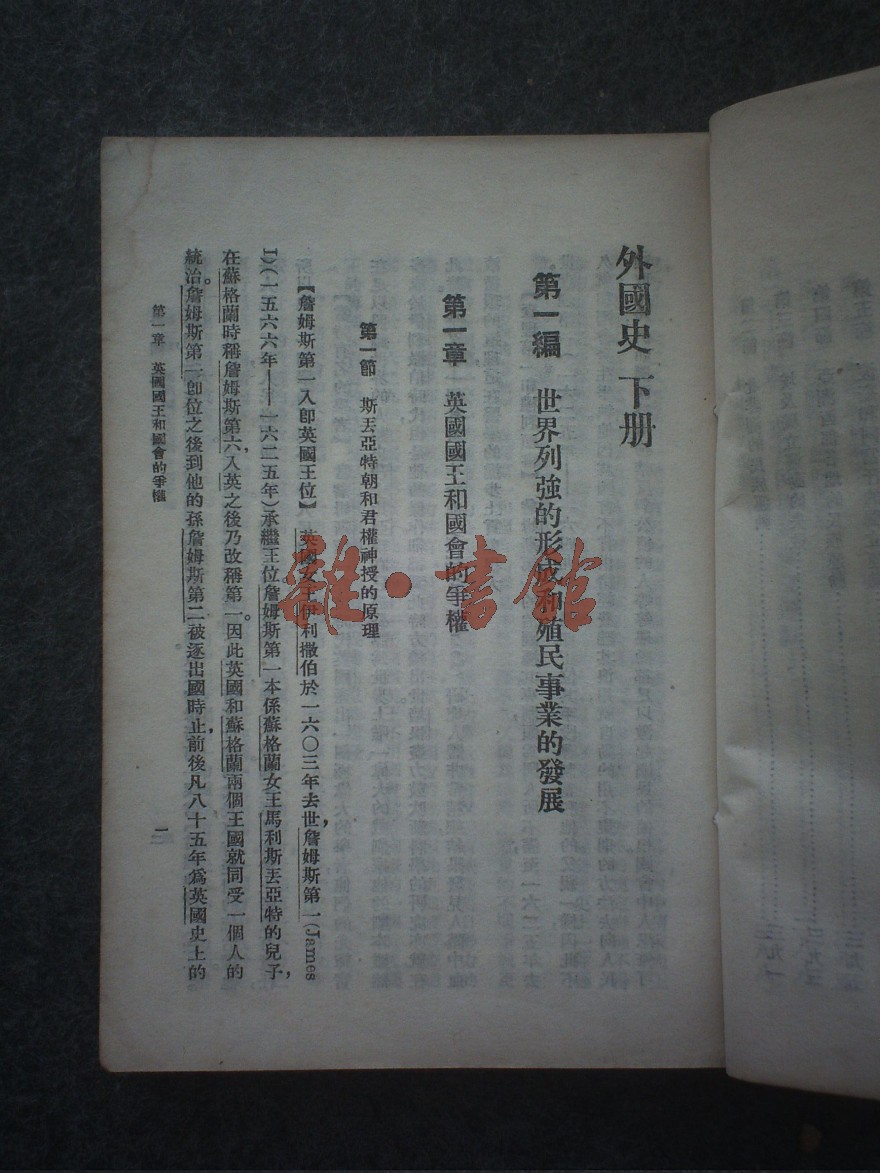 外國史 下册
第一編 世界列強的形成和殖民事業的發展
第一章 英國國王和國會的爭權
第一節 斯丟亞特朝和君權神授的原理
【詹姆斯第一入卽英國王位】 英國女王伊利撒伯於一六〇三年去世,詹姆斯第一(James
I)(一五六六年——一六二五年)承繼王位詹姆斯第一本係蘇格蘭女王馬利斯丟亞特的兒子,
在蘇格蘭時稱詹姆斯第六,入英之後乃改稱第一。因此英國和蘇格蘭兩個王國就同受一個人的
統治。詹姆斯第一卽位之後到他的孫詹姆斯第二被逐出國時止,前後凡八十五年爲英國史上的
第一章 英國國王和國會的爭權
雜·書館